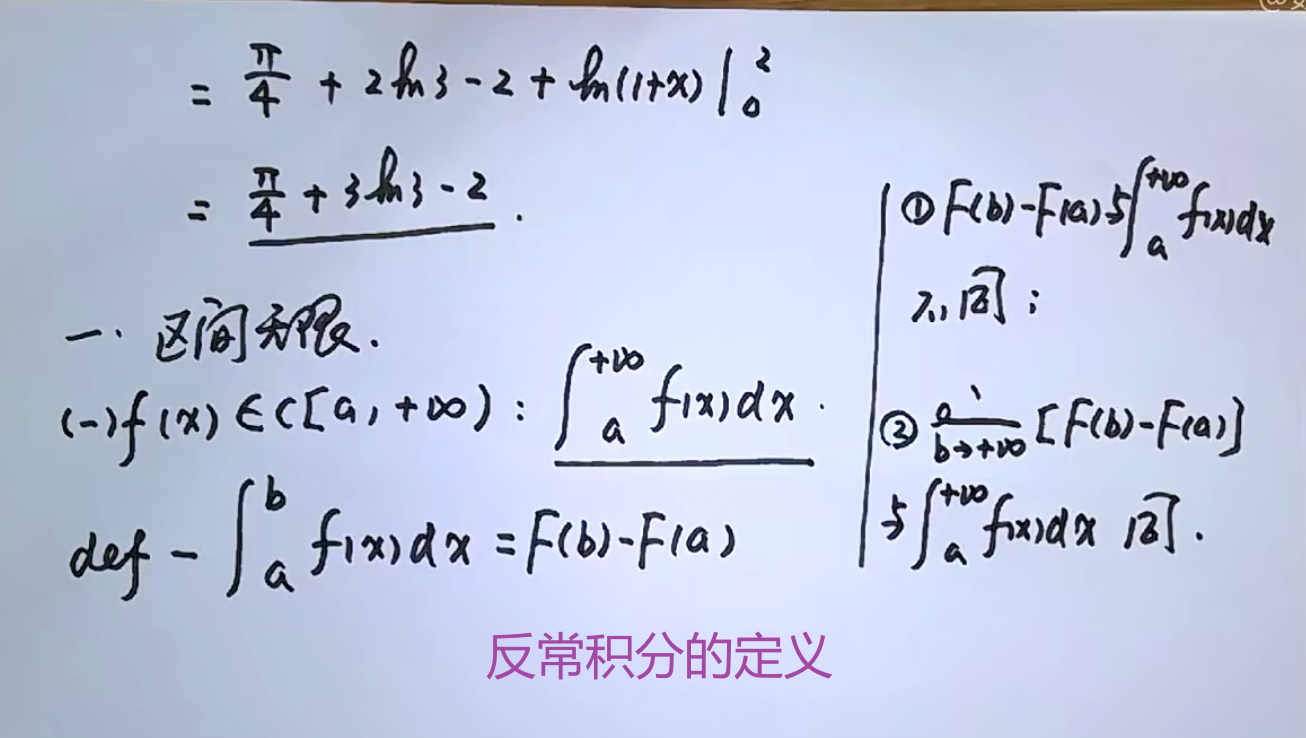 = π/4 + 2ln3 - 2 + ln(1+x) |₀²
= π/4 + 3ln3 - 2 .
一. 区间无限.
(一) f(x) ∈ C[a, +∞) : ∫ₐ^{+∞} f(x)dx .
def - ∫ₐᵇ f(x)dx = F(b) - F(a)
① F(b)-F(a)与∫ₐ^{+∞} f(x)dx
不同 ;
② b→+∞ [F(b)-F(a)]
与∫ₐ^{+∞} f(x)dx 同 .
反常积分的定义